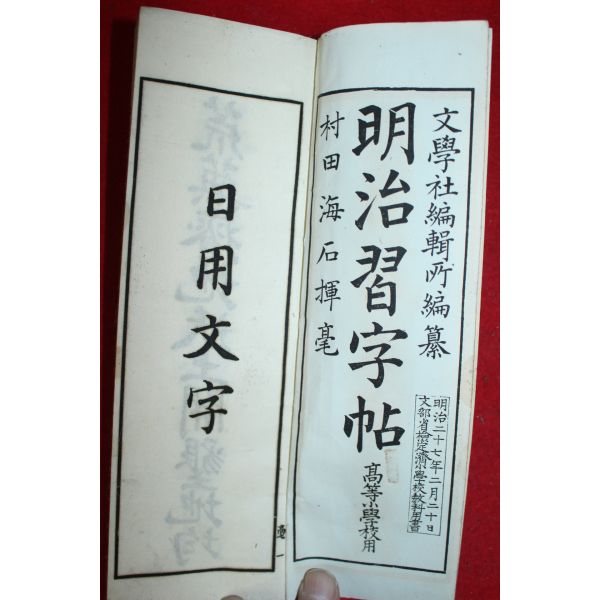 文學社編輯所編纂
明治習字帖
高等小學校用
村田海石揮毫
明治二十七年二月二十日
文部省檢定濟小學校敎科用書
日用文字